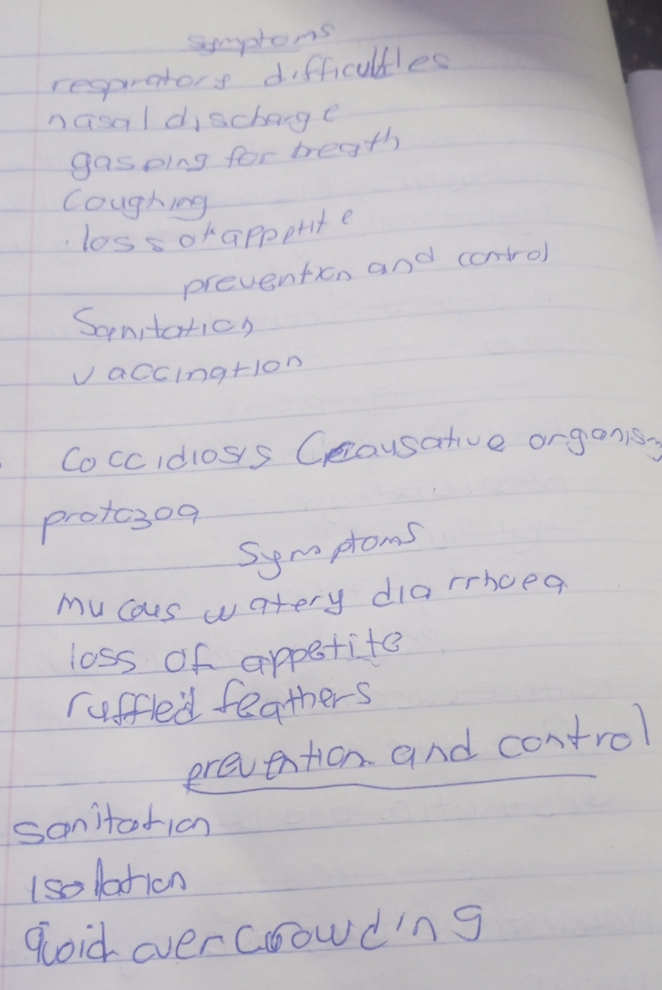 symptoms
respiratory difficultles
nasal discharge
gasping for breath
Coughing
loss of appetite
prevention and control
Sanitation
vaccination
Coccidiosis Causative organism
protozoa
Symptoms
Mucous watery diarrhoea
loss of appetite
ruffled feathers
prevention and control
sanitation
Isolation
avoid overcrowding